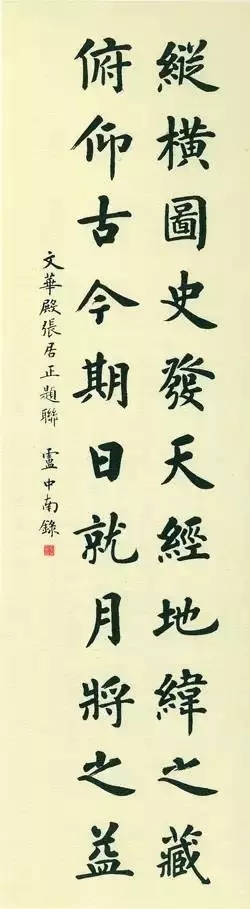 縱橫圖史發天經地緯之藏
俯仰古今期日就月將之益
文華殿張居正題聯 盧中南錄